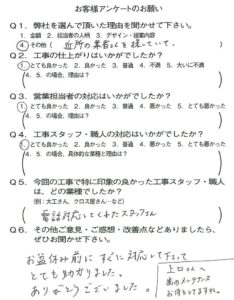 お客様アンケートのお願い
Q1. 弊社を選んで頂いた理由を聞かせて下さい。
1. 金額 2. 担当者の人柄 3. デザイン・提案内容
4. その他（ 近所の業者さんを探していて。 ）
Q2. 工事の仕上がりはいかがでしたか？
1. とても良かった 2. 良かった 3. 普通 4. 不満 5. 大いに不満
（4. 5. の場合、理由は？ ）
Q3. 営業担当者の対応はいかがでしたか？
1. とても良かった 2. 良かった 3. 普通 4. 悪かった 5. とても悪かった
（4. 5. の場合、理由は？ ）
Q4. 工事スタッフ・職人の対応はいかがでしたか？
1. とても良かった 2. 良かった 3. 普通 4. 悪かった 5. とても悪かった
（4. 5. の場合、具体的な業種と理由は？ ）
Q5. 今回の工事で特に印象の良かった工事スタッフ・職人
は、どの業種でしたか？
（例：大工さん、クロス屋さん…など）
（ 電話対応してくれたスタッフさん ）
Q6. その他ご意見・ご感想・改善点などありましたら、
ぜひお聞かせ下さい。
お盆休み前にすぐに対応して下さって
とても助かりました。
ありがとうございました。
上口さんへ
お待ちしてますね。